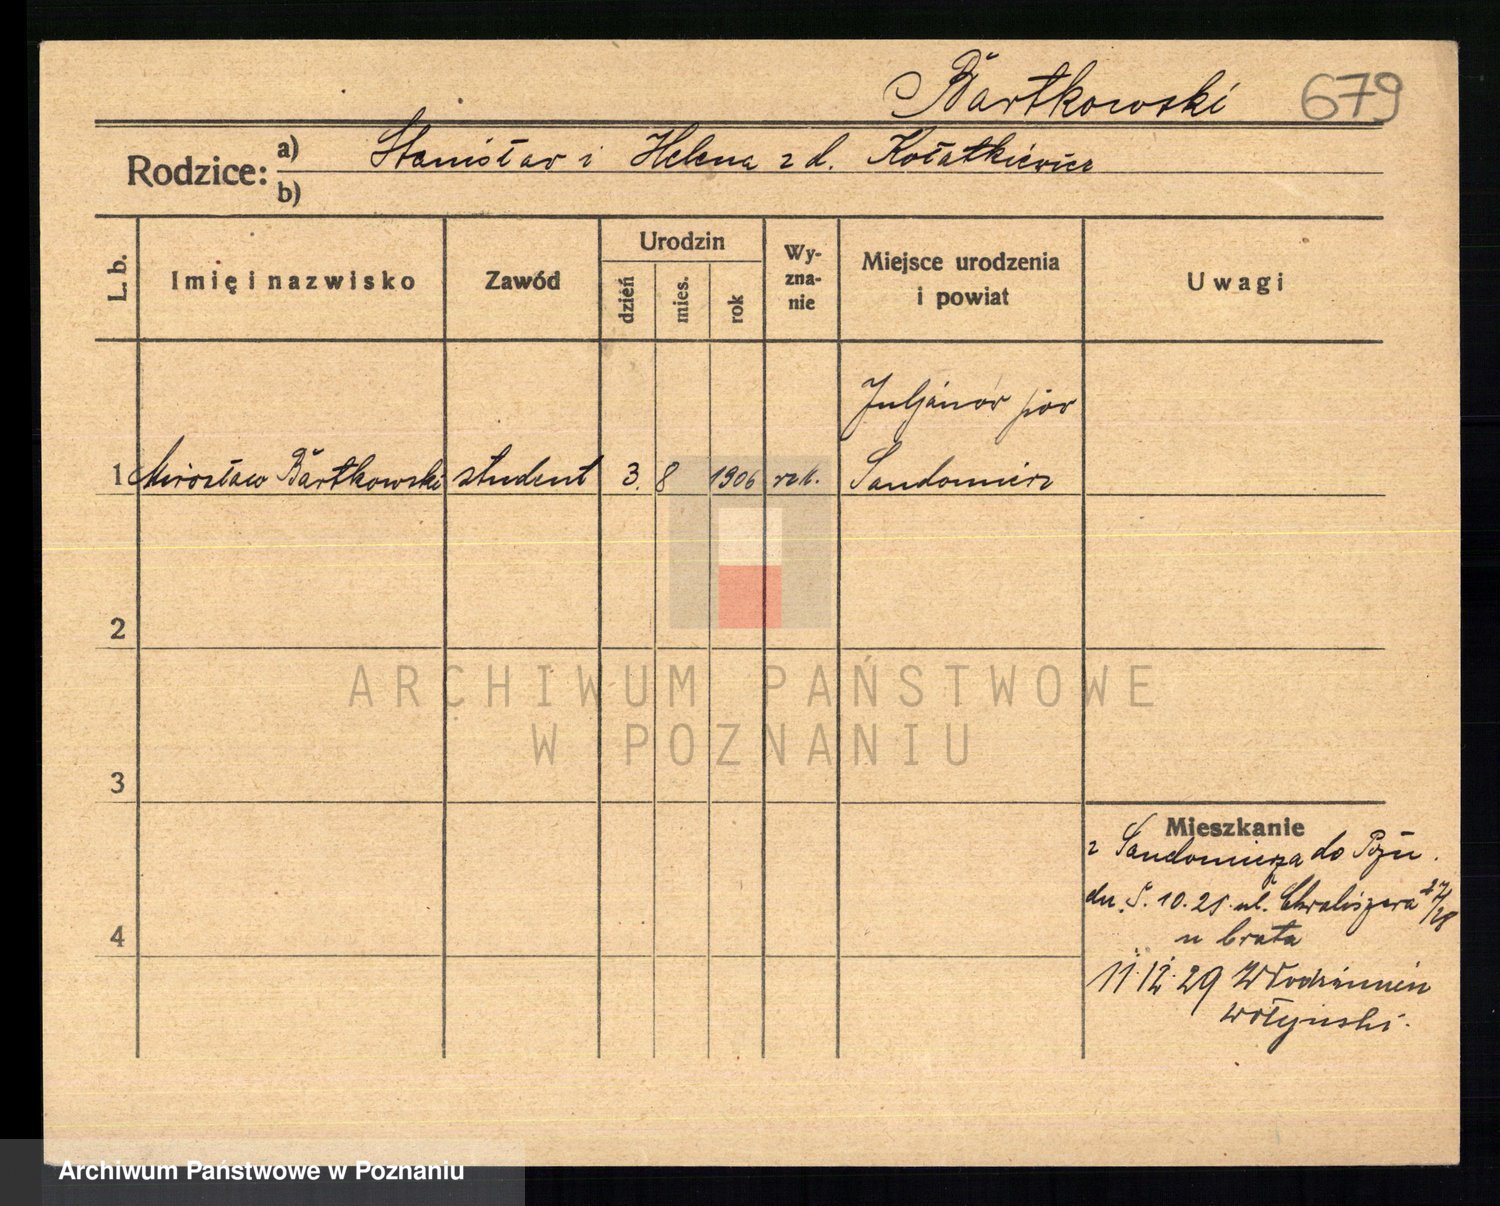 Bartkowski 679
Rodzice: a) Stanisław i Helena z d. Kołatkiewicz
b)
L. b.
Imię i nazwisko
Zawód
Urodzin
dzień
mies.
rok
Wy-
zna-
nie
Miejsce urodzenia
i powiat
Uwagi
Juljanów pow
1 Mirosław Bartkowski student 3. 8 1906 rzk. Sandomierz
2
3
4
ARCHIWUM PAŃSTWOWE
W POZNANIU
Mieszkanie
z Sandomierza do Pozn.
dn. 5. 10. 25. ul.
u brata
11.12.29 Włodzimierz
wołyński.
Archiwum Państwowe w Poznaniu